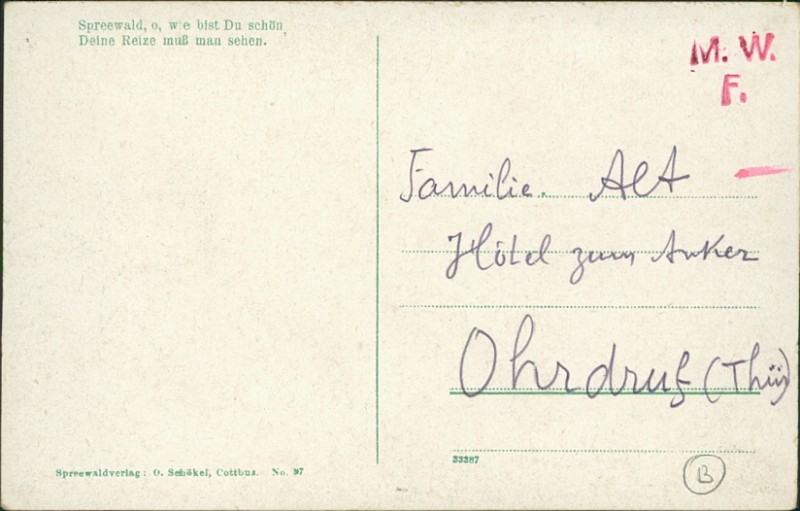 Spreewald, o, wie bist Du schön
Deine Reize muß man sehen.
M. W.
F.
Familie. Alt
Hôtel zum Anker
Ohrdruf (Thür)
Spreewaldverlag: O. Schökel, Cottbus. No. 97
33387
B